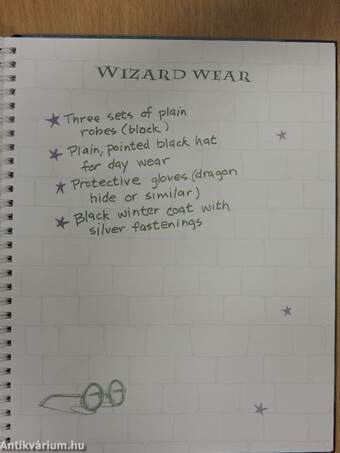 WIZARD WEAR
Three sets of plain
robes (black)
Plain, pointed black hat
for day wear
Protective gloves (dragon
hide or similar)
Black winter coat with
silver fastenings
Antikvárium.hu